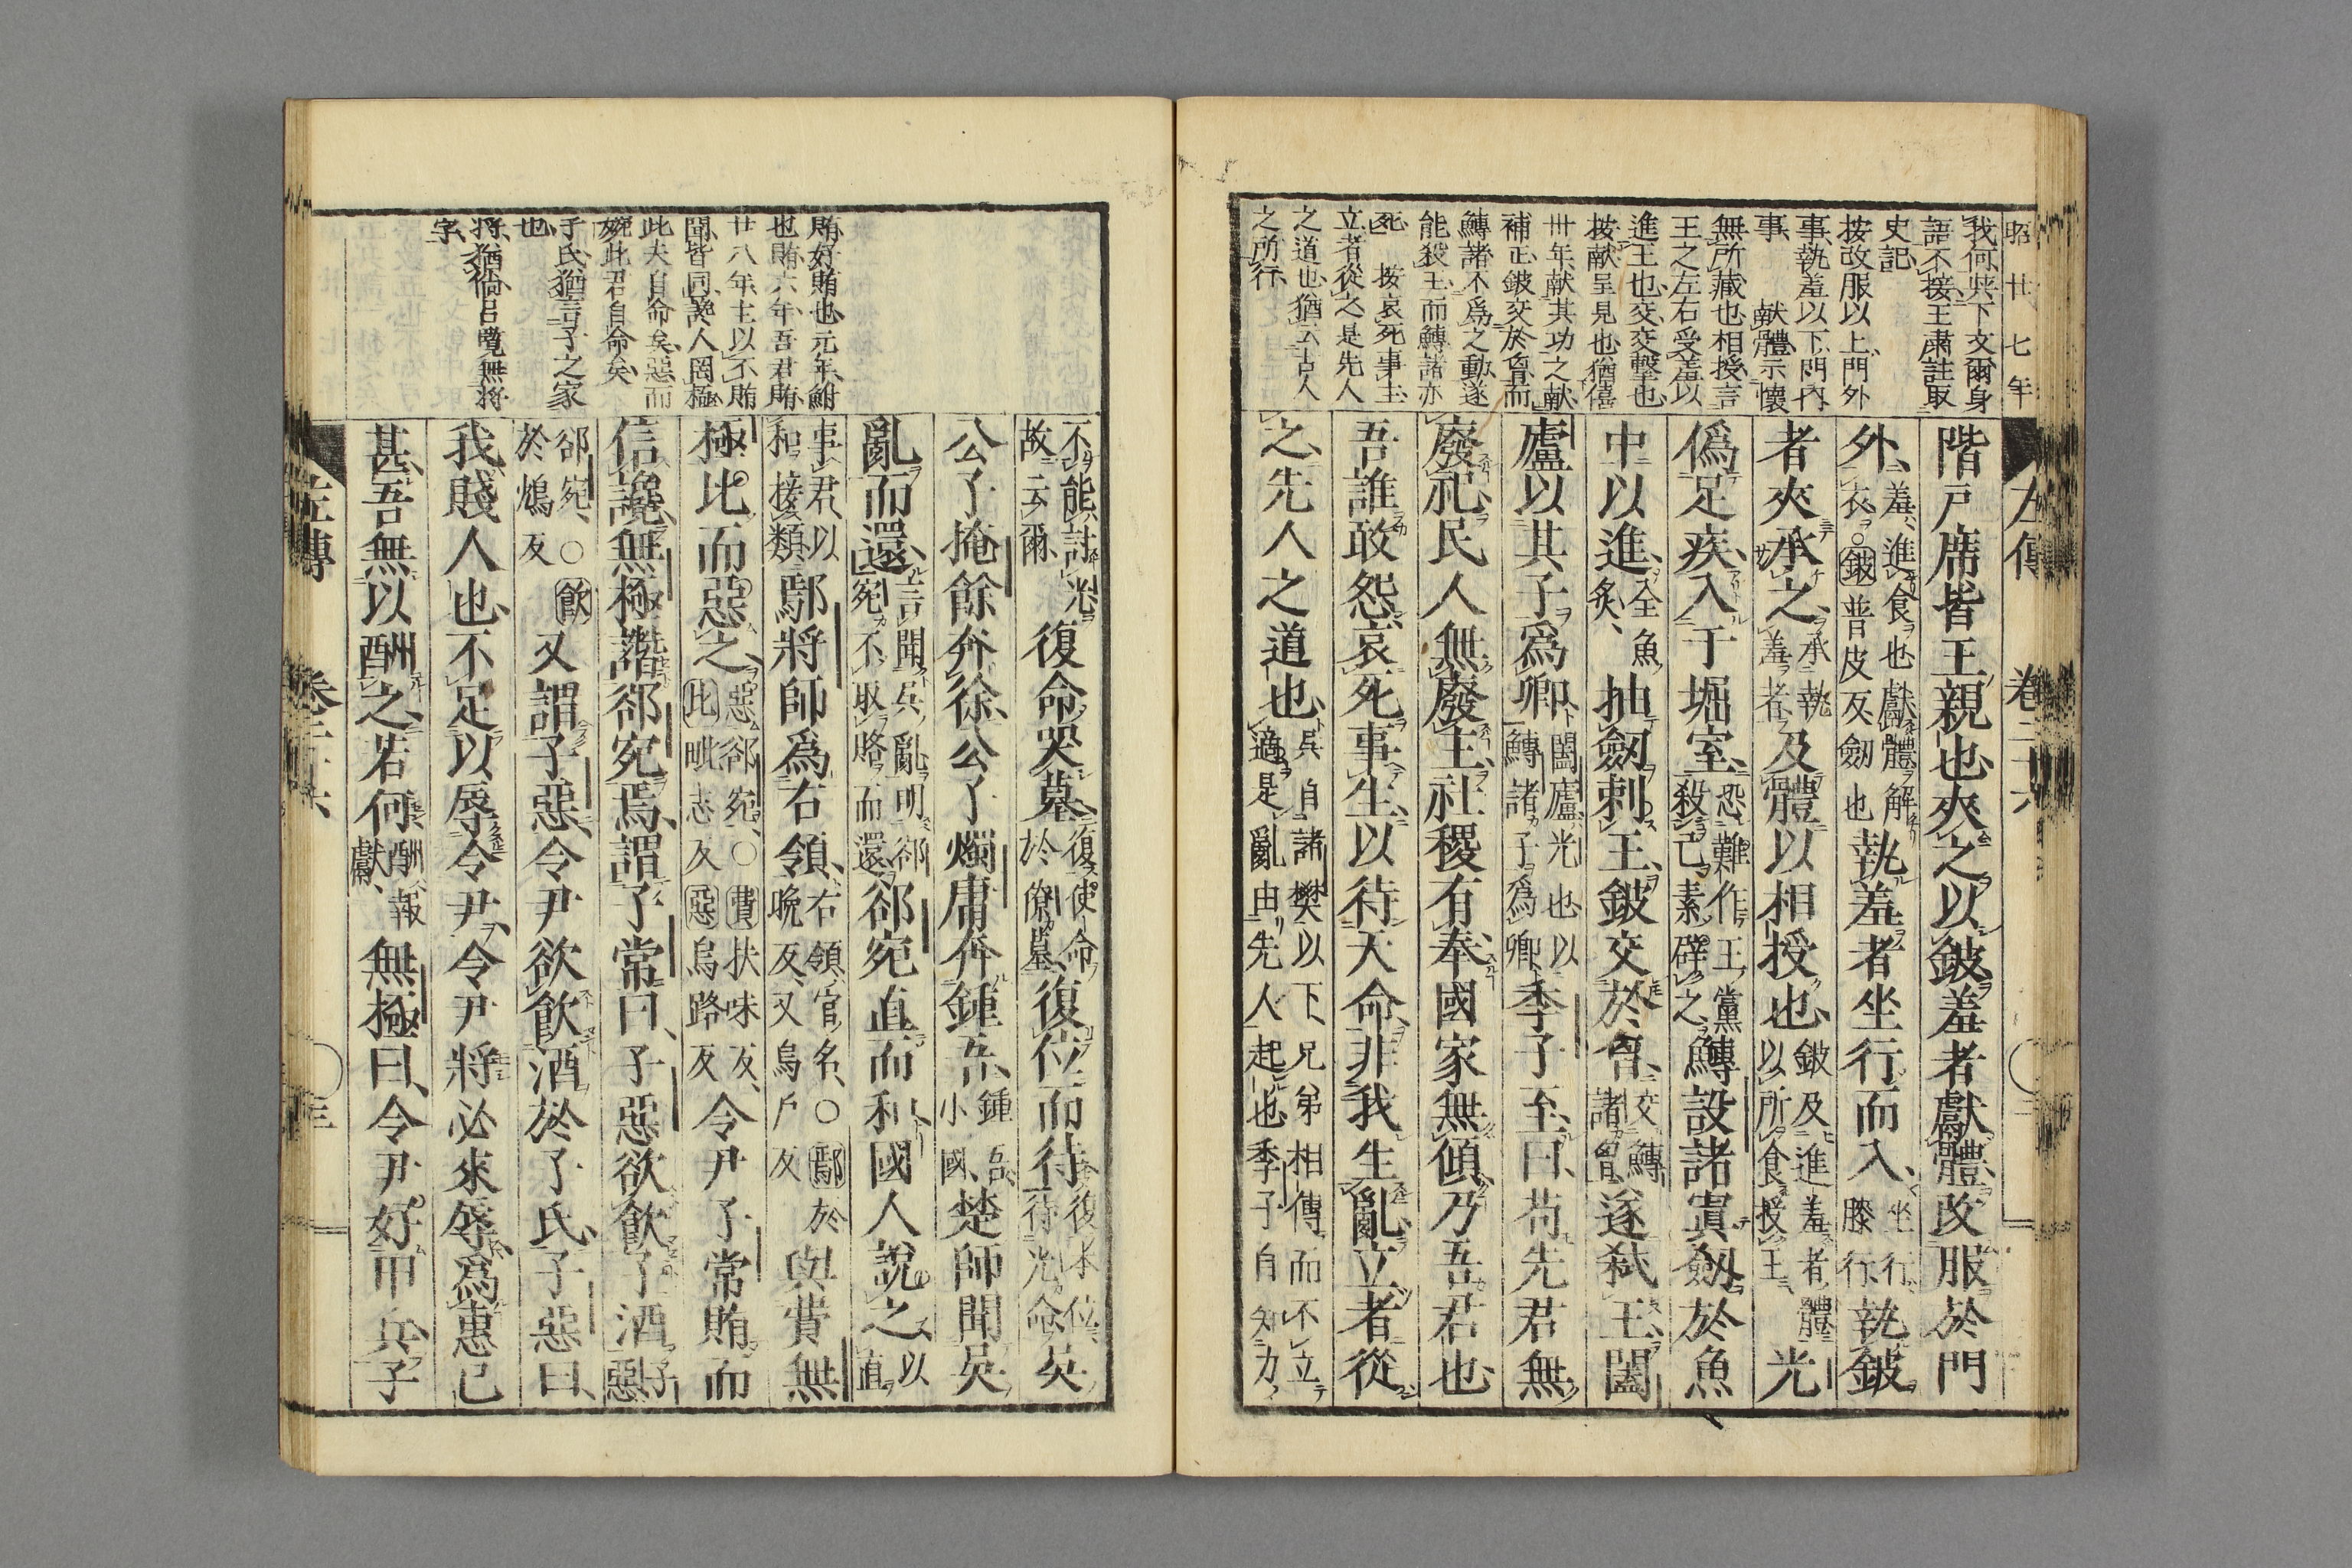 昭廿七年
我何其下文爾身
語不接王肅註取
史記
按改服以上門外
事執羞以下門内
事 献體示懷
無所藏也相授言
王之左右受羞以
進王也交交撃也
按献呈見也猶僖
卅年献其功之献
補正鈹交於胷而
鱄諸不爲之動遂
能殺王而鱄諸亦
死 按哀死事生
立者從之是先人
之道也猶云古人
之所行
左傳 卷二十六
階戸席皆王親也夾之以鈹羞者獻體改服於門
外羞進食也獻體解衣○鈹普皮反劒也執羞者坐行而入坐行膝行執鈹
者夾承之承執羞者及體以相授也鈹及進羞者體以所食授王光
僞足疾入于堀室恐難作王黨殺己素辟之鱄設諸寘劒於魚
中以進全魚炙抽劒刺王鈹交於胷交鱄諸胷遂弑王闔
廬以其子爲卿闔廬光也以鱄諸子爲卿季子至曰苟先君無
廢祀民人無廢主社稷有奉國家無傾乃吾君也
吾誰敢怨哀死事生以待天命非我生亂立者從
之先人之道也吳自諸樊以下兄弟相傳而不立適是亂由先人起也季子自知力
不能討光故云爾復命哭墓復使命於僚墓復位而待復本位待光命吳
公子掩餘奔徐公子燭庸奔鍾吾鍾吾小國楚師聞吳
亂而還言聞吳亂明郤宛不取賂而還郤宛直而和國人說之以直
事君以和接類鄢將師爲右領右領官名○鄢於晚反又烏戸反與費無
極比而惡之惡郤宛○費扶味反比毗志反惡烏路反令尹子常賄而
信讒無極譖郤宛焉謂子常曰子惡欲飲子酒子惡
郤宛○飲於鴆反又謂子惡令尹欲飲酒於子氏子惡曰
我賤人也不足以辱令尹令尹將必來辱爲惠已
甚吾無以酬之若何酬報獻無極曰令尹好甲兵子
賄好賄也元年鮒
也賄六年吾君賄
廿八年主以不賄
聞皆同義人罔極
此夫自命矣惡而
婉此君自命矣
子氏猶言子之家
也
將猶倘呂覽無將
字
左傳 卷二十六